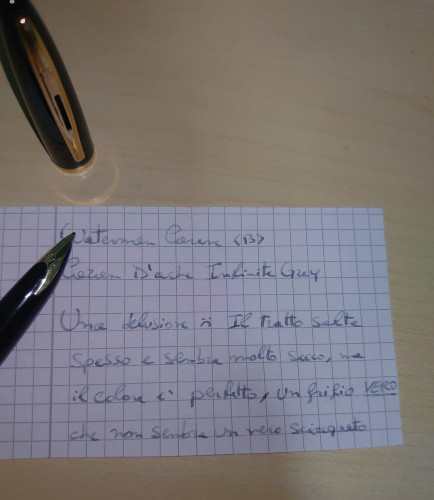 Waterman Carene <B>
Caran D'ache Infinite Grey
Una delusione :: Il tratto salta
spesso e sembra molto secco, ma
il colore è perfetto, un grigio VERO
che non sembra un nero sciacquato